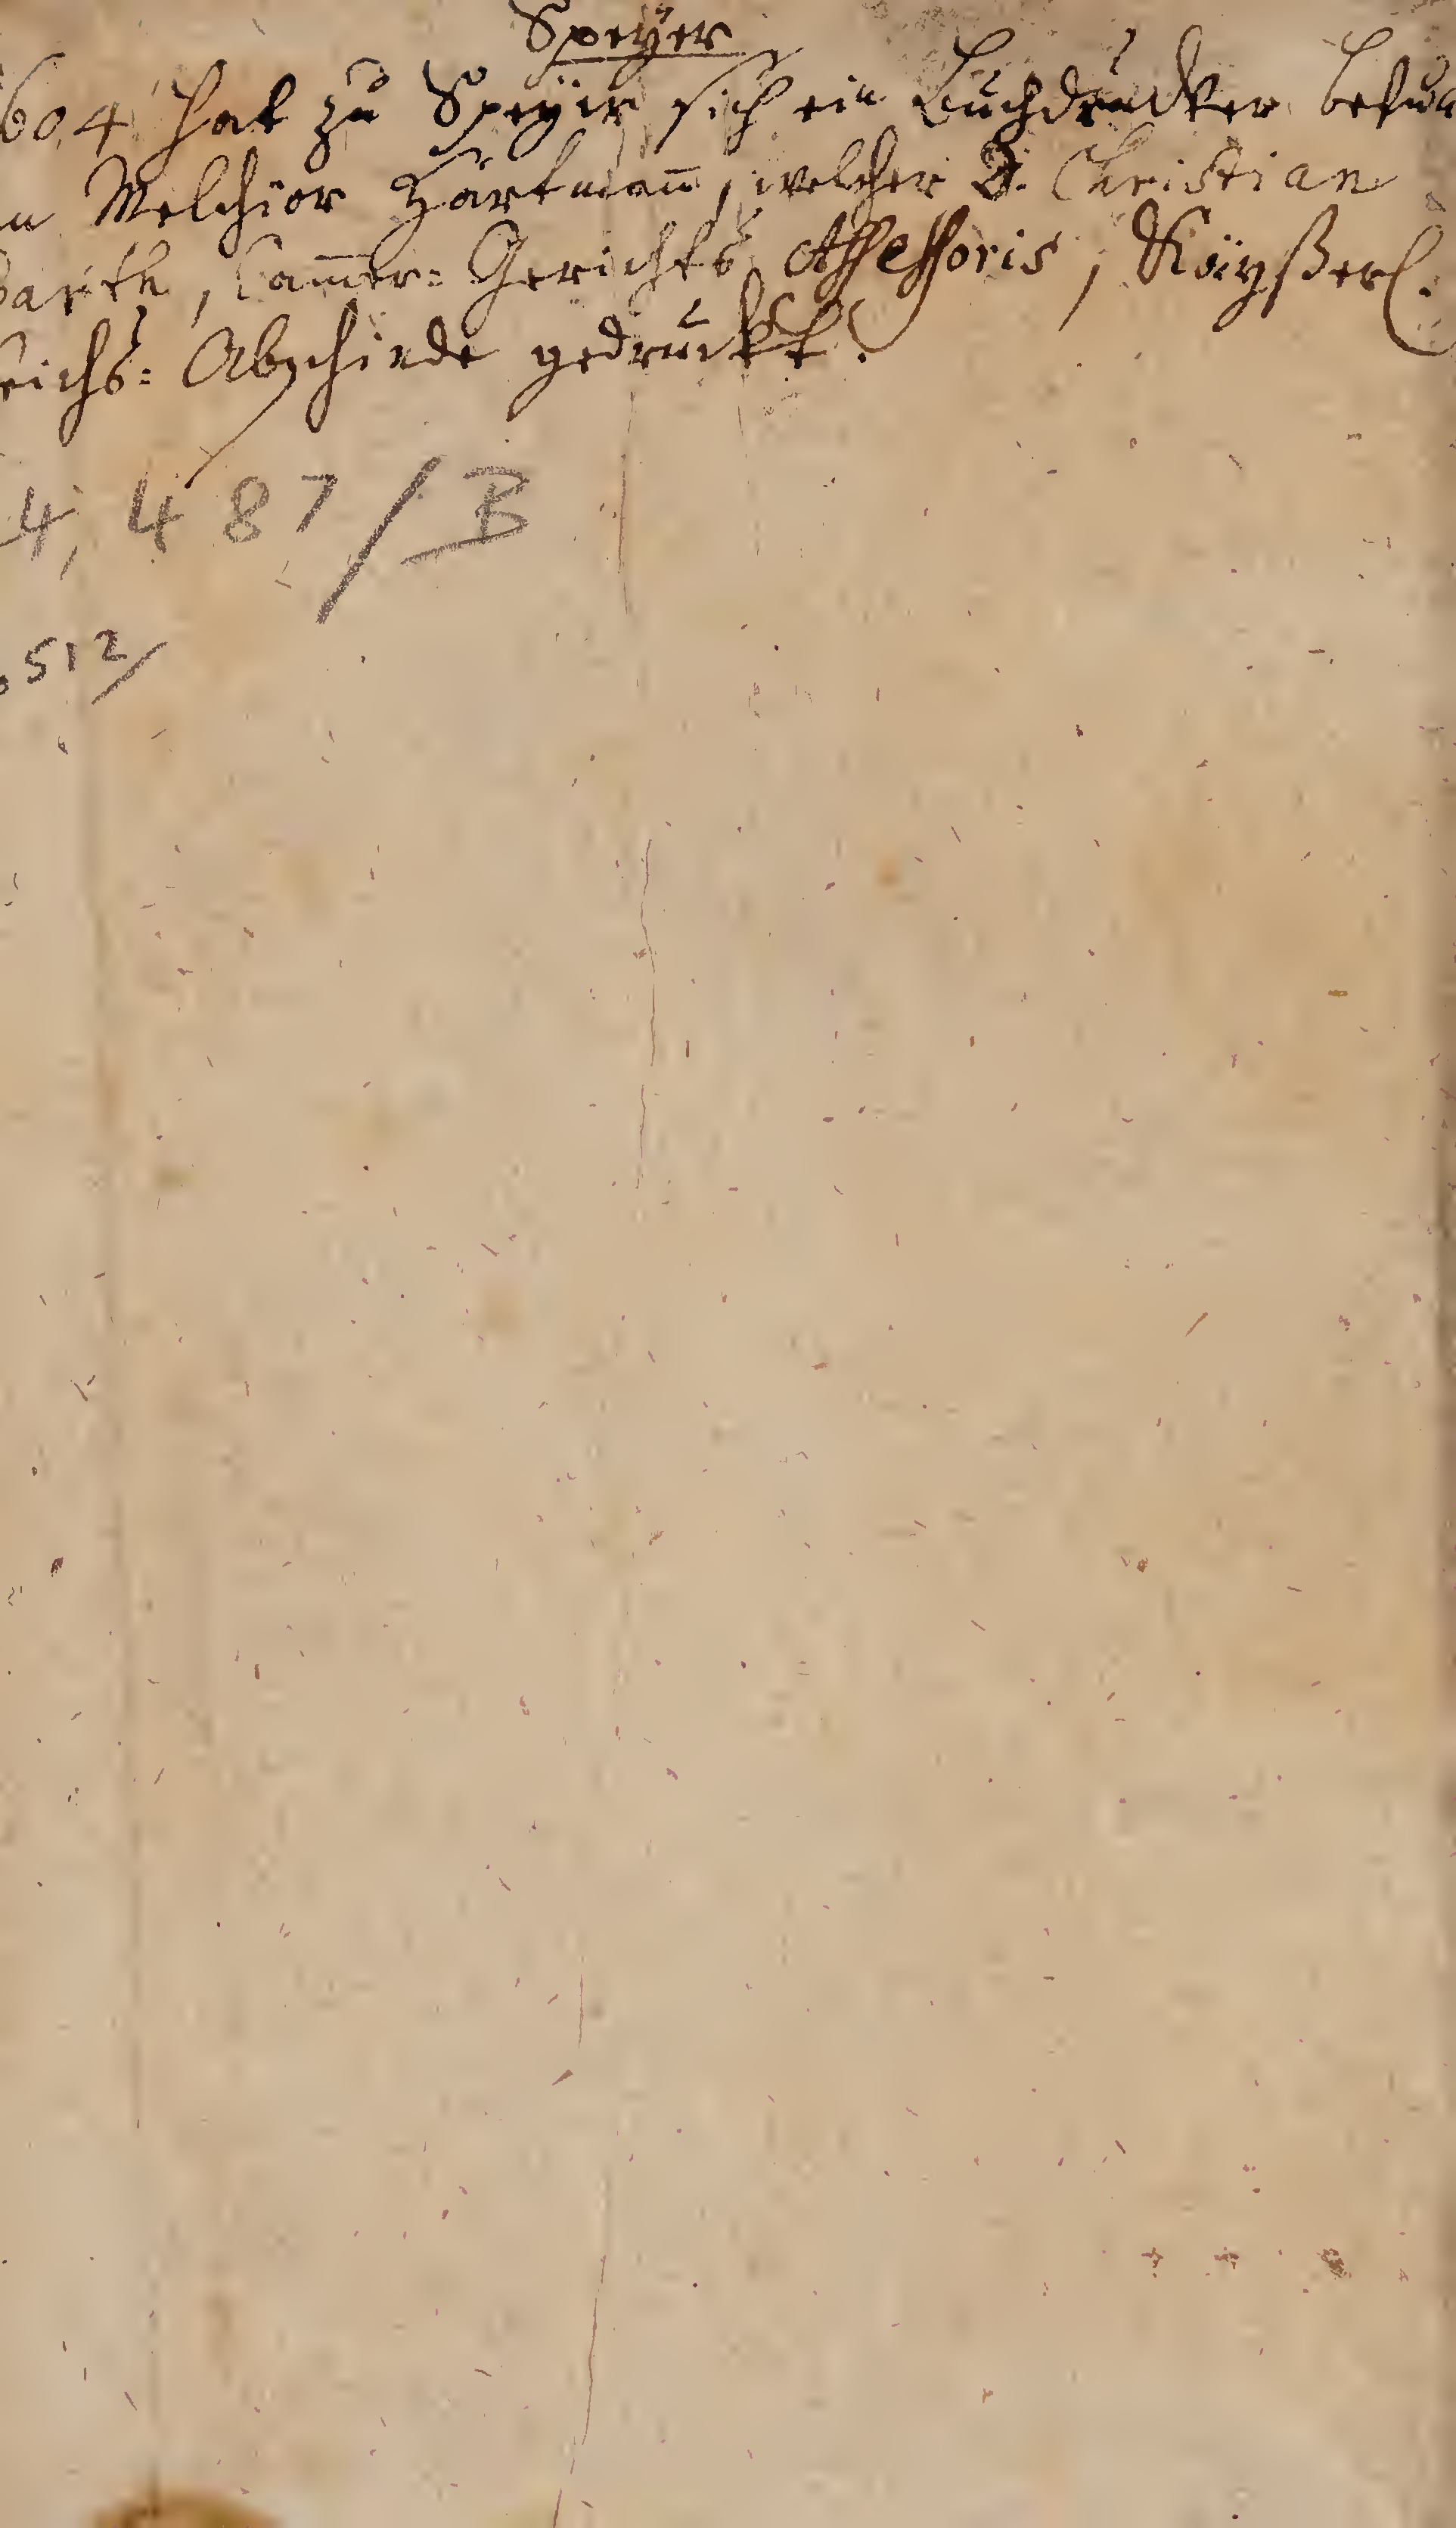 Speÿer
604 hat zu Speÿer sich ein Buchdrucker befun
n Melchior Hartman̄, welcher D. Christian
Barth, Cam̄er= Gerichts Assessoris, Kaÿßerl.
eichs= Abschiede gedruckt.
4, 487/B
512/